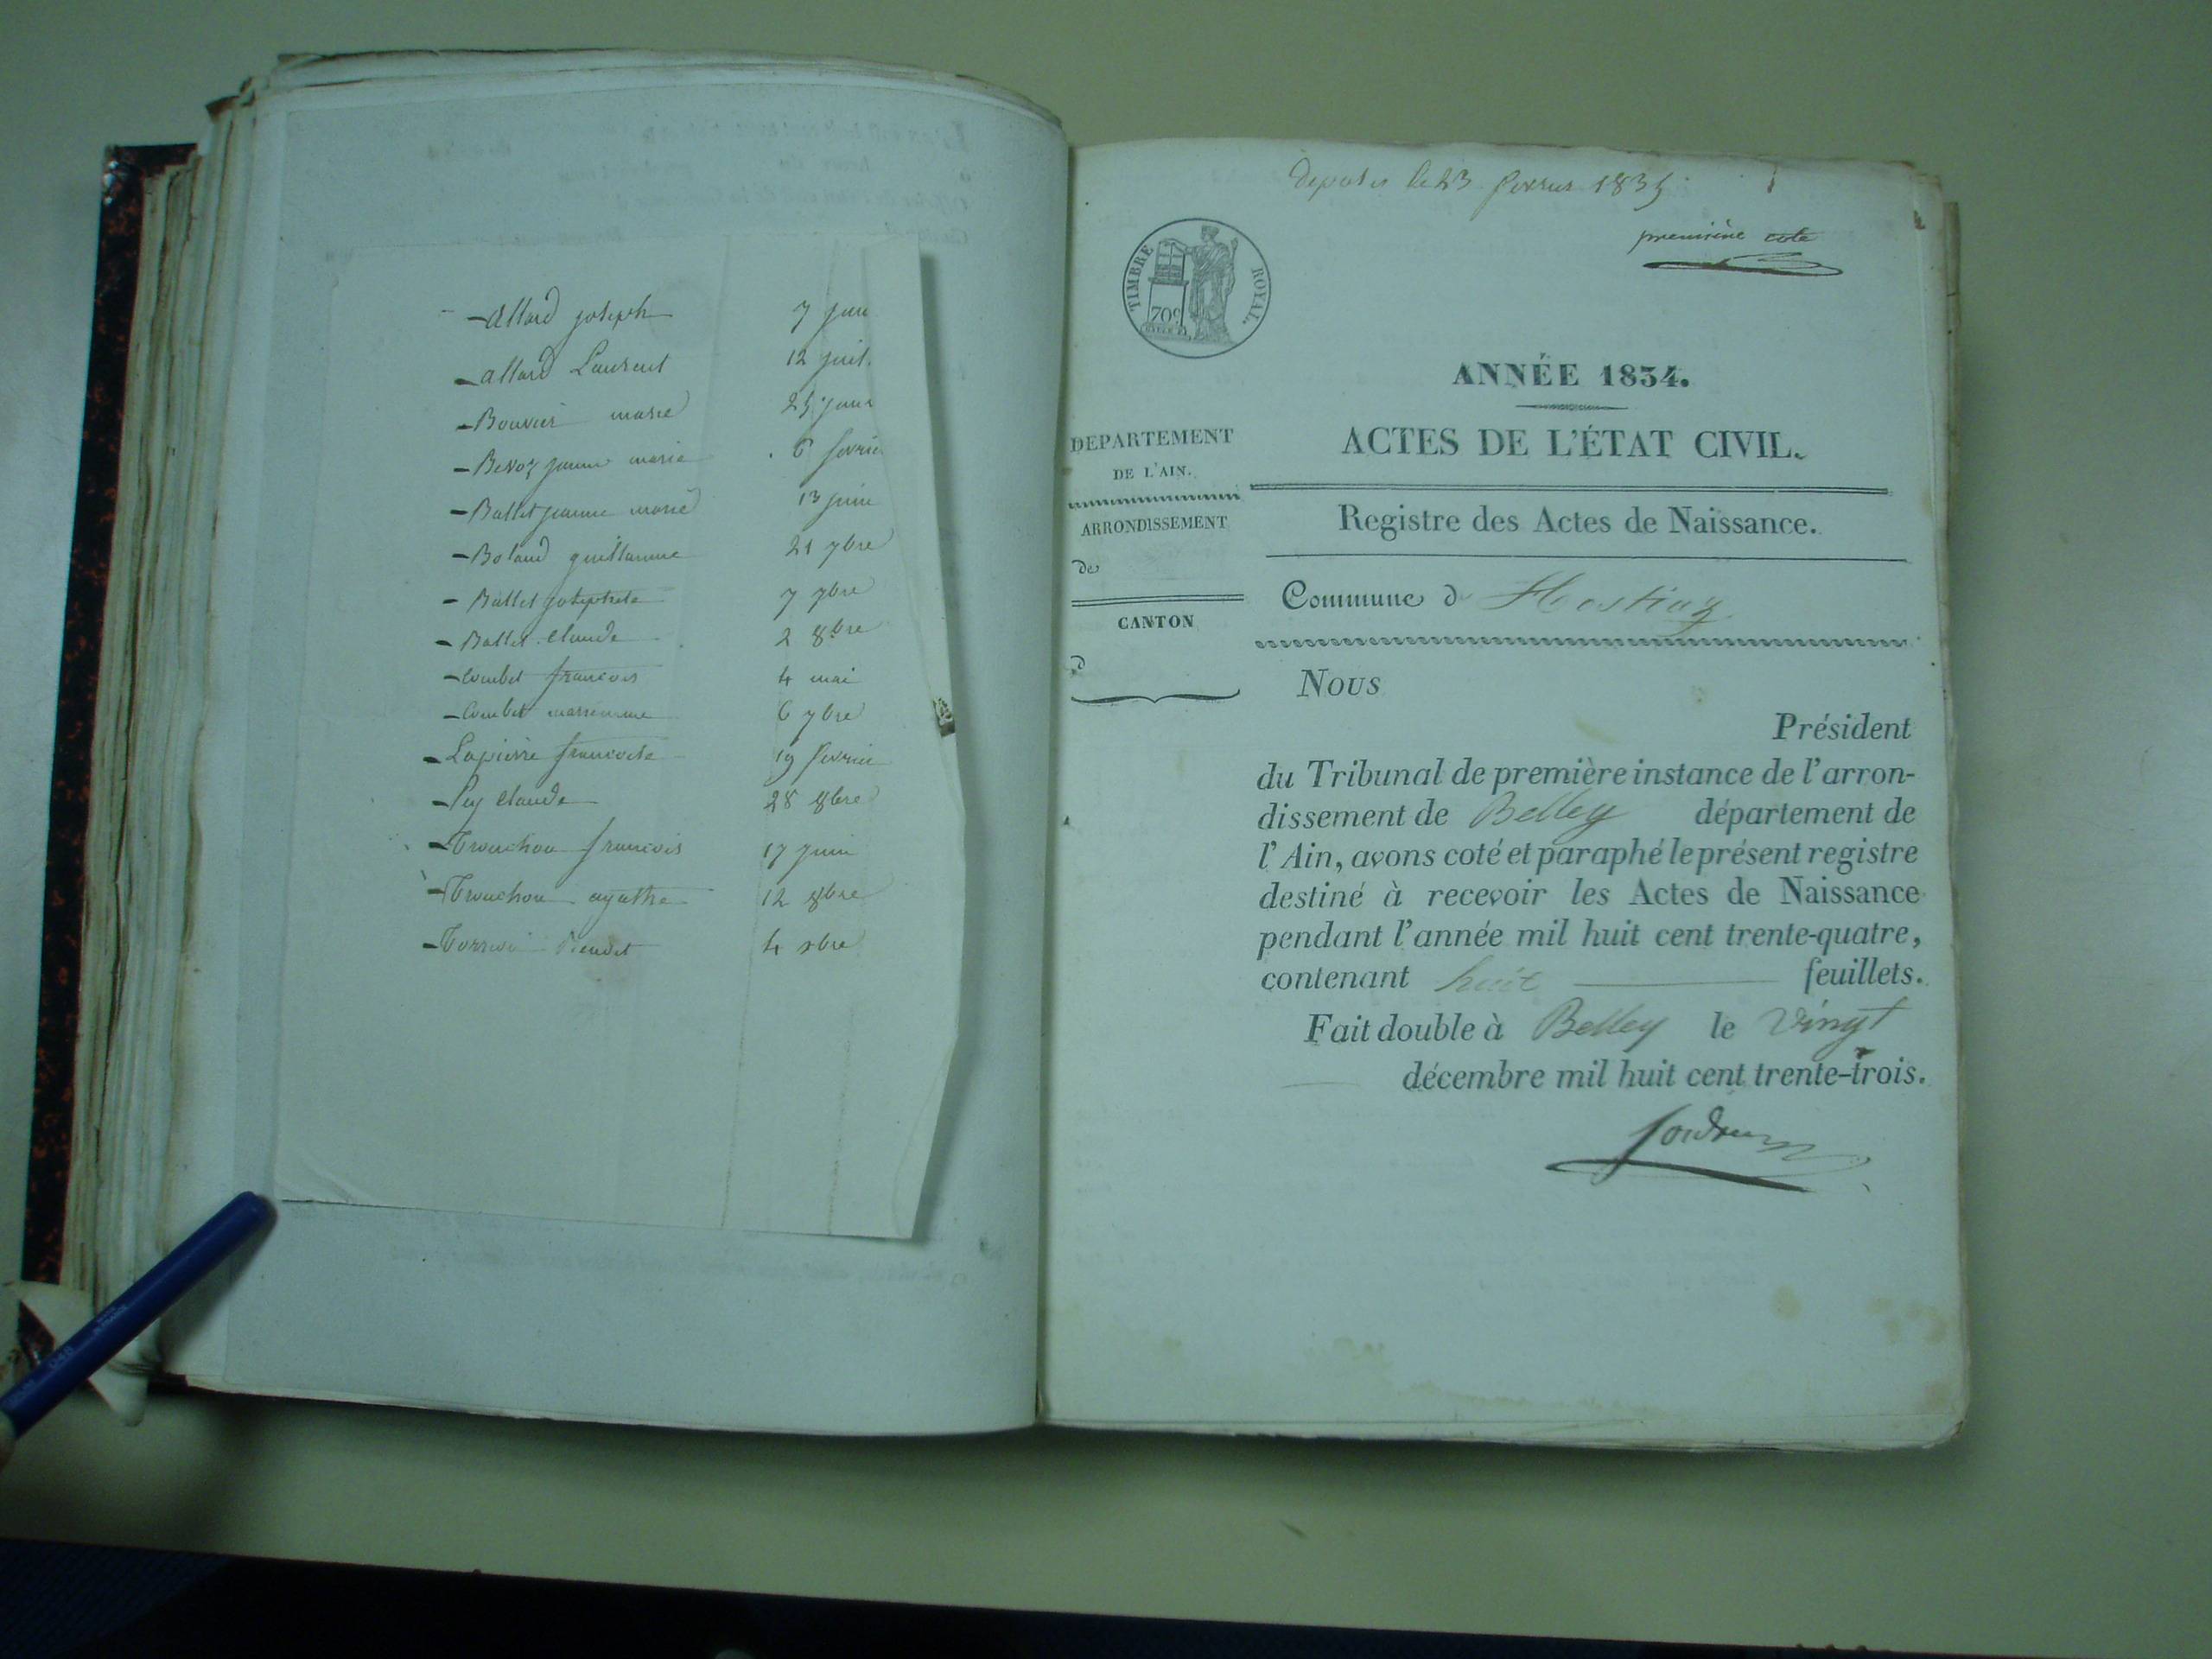 - Allard joseph 7 juin
- allard Laurent 12 juil.
- Bouvier marie 25 janv
- Bevoz jeanne marie 6 fevrier
- Ballet jeanne marie 13 juin
- Boland guillaume 21 7bre
- Ballet josephete 7 9bre
- Ballet Claude 2 8bre
- Combet francois 4 mai
- Combet 6 7bre
- Lapierre francoise 19 fevrier
- Pey Claude 28 8bre
- Trouchon francois 17 juin
- Trouchon agathe 12 8bre
4 xbre
le 23 fevrier 1835
première cote
TIMBRE ROYAL.
70c
ANNÉE 1834.
ACTES DE L'ÉTAT CIVIL.
Registre des Actes de Naissance.
DEPARTEMENT
DE L'AIN.
ARRONDISSEMENT
de
CANTON
d
Commune d Hostiaz
Nous
Président
du Tribunal de première instance de l'arron-
dissement de Belley département de
l'Ain, avons coté et paraphé le présent registre
destiné à recevoir les Actes de Naissance
pendant l'année mil huit cent trente-quatre,
contenant huit feuillets.
Fait double à Belley le vingt
décembre mil huit cent trente-trois.